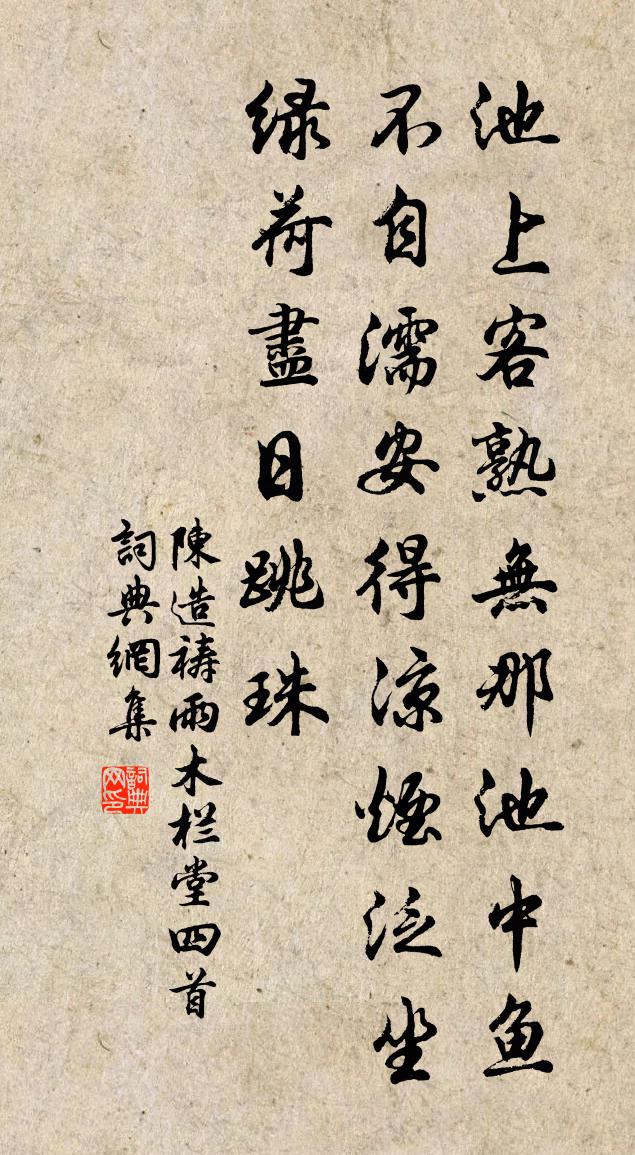 池上客熟無那池中魚
不自濡安得涼煙泛坐
綠荷盡日跳珠
陳造禱雨木栏堂四首
詞典網集
詞典网印